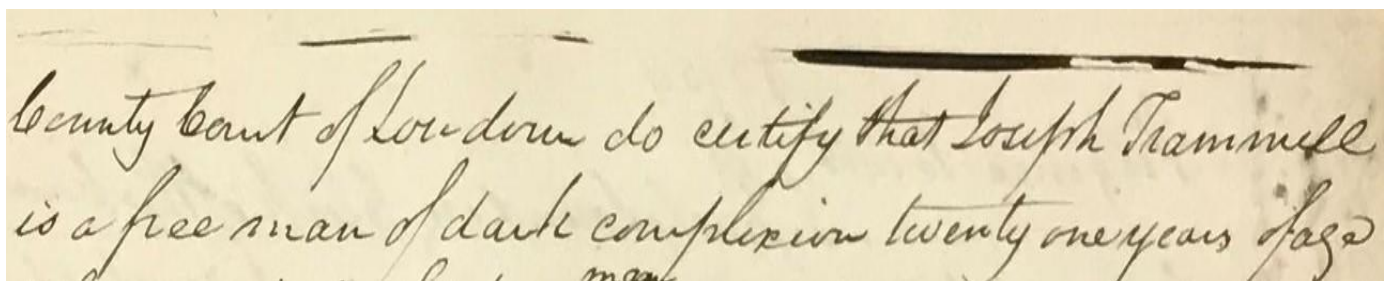 County Court of Loudoun do certify that Joseph Trammell
is a free man of dark complexion twenty one years of age